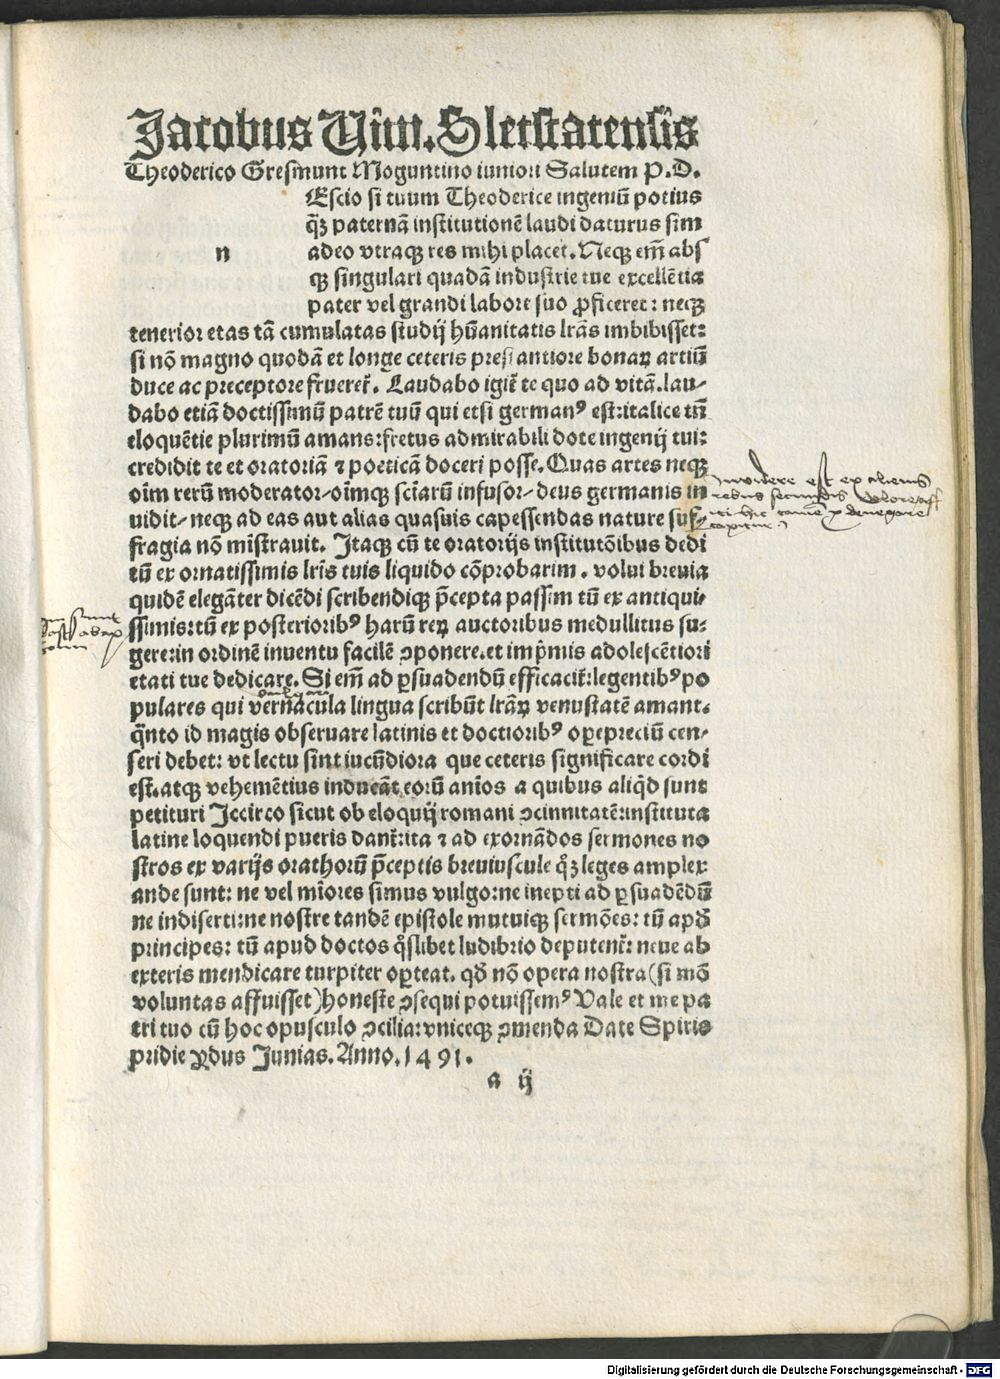 Jacobus Uim̄. Sletstatensis
Theoderico Gresmunt Moguntino iuniori Salutem P.D.
Escio si tuum Theoderice ingeniū potius
q̄ꝫ paternā institutionē laudi daturus sim
n adeo vtraqꝫ res mihi placet. Neqꝫ em̄ abs
qꝫ singulari quadā industrie tue excellētia
pater vel grandi labore suo ꝓficeret: neqꝫ
tenerior etas tā cumulatas studij hūanitatis lr̄as imbibisset:
si nō magno quodā et longe ceteris prestantiore bonaꝝ artiū
duce ac preceptore frueret̄. Laudabo igit̄ te quo ad vitā.lau-
dabo etiā doctissimū patrē tuū qui etsi germanꝰ est:italice tn̄
eloquētie plurimū amans:fretus admirabili dote ingenij tui:
credidit te et oratoriā ⁊ poeticā doceri posse. Quas artes neqꝫ
oīm rerū moderator-oīmqꝫ sciārū infusor-deus germanis in
uidit-neqꝫ ad eas aut alias quasuis capessendas nature suf-
fragia nō mīstrauit. Itaqꝫ cū te oratorijs institutōibus dedi
tū ex ornatissimis lr̄is tuis liquido cōprobarim. volui breuia
quidē elegāter dicēdi scribendiqꝫ p̄cepta passim tū ex antiqui-
ssimis:tū ex posterioribꝰ harū reꝝ auctoribus medullitus su-
gere:in ordinē inuentu facilē ꝯponere.et imp̄mis adolescētiori
etati tue dedicare. Si em̄ ad ꝑsuadendū efficacit̄:legentibꝰ po
pulares qui vernacula lingua scribūt lr̄aꝝ venustatē amant.
q̄nto id magis obseruare latinis et doctioribꝰ oꝑepreciū cen-
seri debet: vt lectu sint iucūdiora que ceteris significare cordi
est.atqꝫ vehemētius inducāt eorū anīos a quibus aliq̄d sunt
petituri Iccirco sicut ob eloquij romani ꝯcinnitatē:instituta
latine loquendi pueris dant̄:ita ⁊ ad exornādos sermones no
stros ex varijs orathorū p̄ceptis breuiuscule q̄ꝫ leges amplex
ande sunt: ne vel mīores simus vulgo:ne inepti ad ꝑsuadēdū
ne indiserti:ne nostre tandē epistole mutuiqꝫ sermōes: tū apd̄
principes: tū apud doctos q̄slibet ludibrio deputent̄: neue ab
exteris mendicare turpiter oꝑteat. qd̄ nō opera nostra(si mō
voluntas affuisset)honeste ꝯsequi potuissemꝰ Vale et me pa
tri tuo cū hoc opusculo ꝯcilia:vniceqꝫ ꝯmenda Date Spiris
pridie ydus Junias. Anno.1491.
a ij